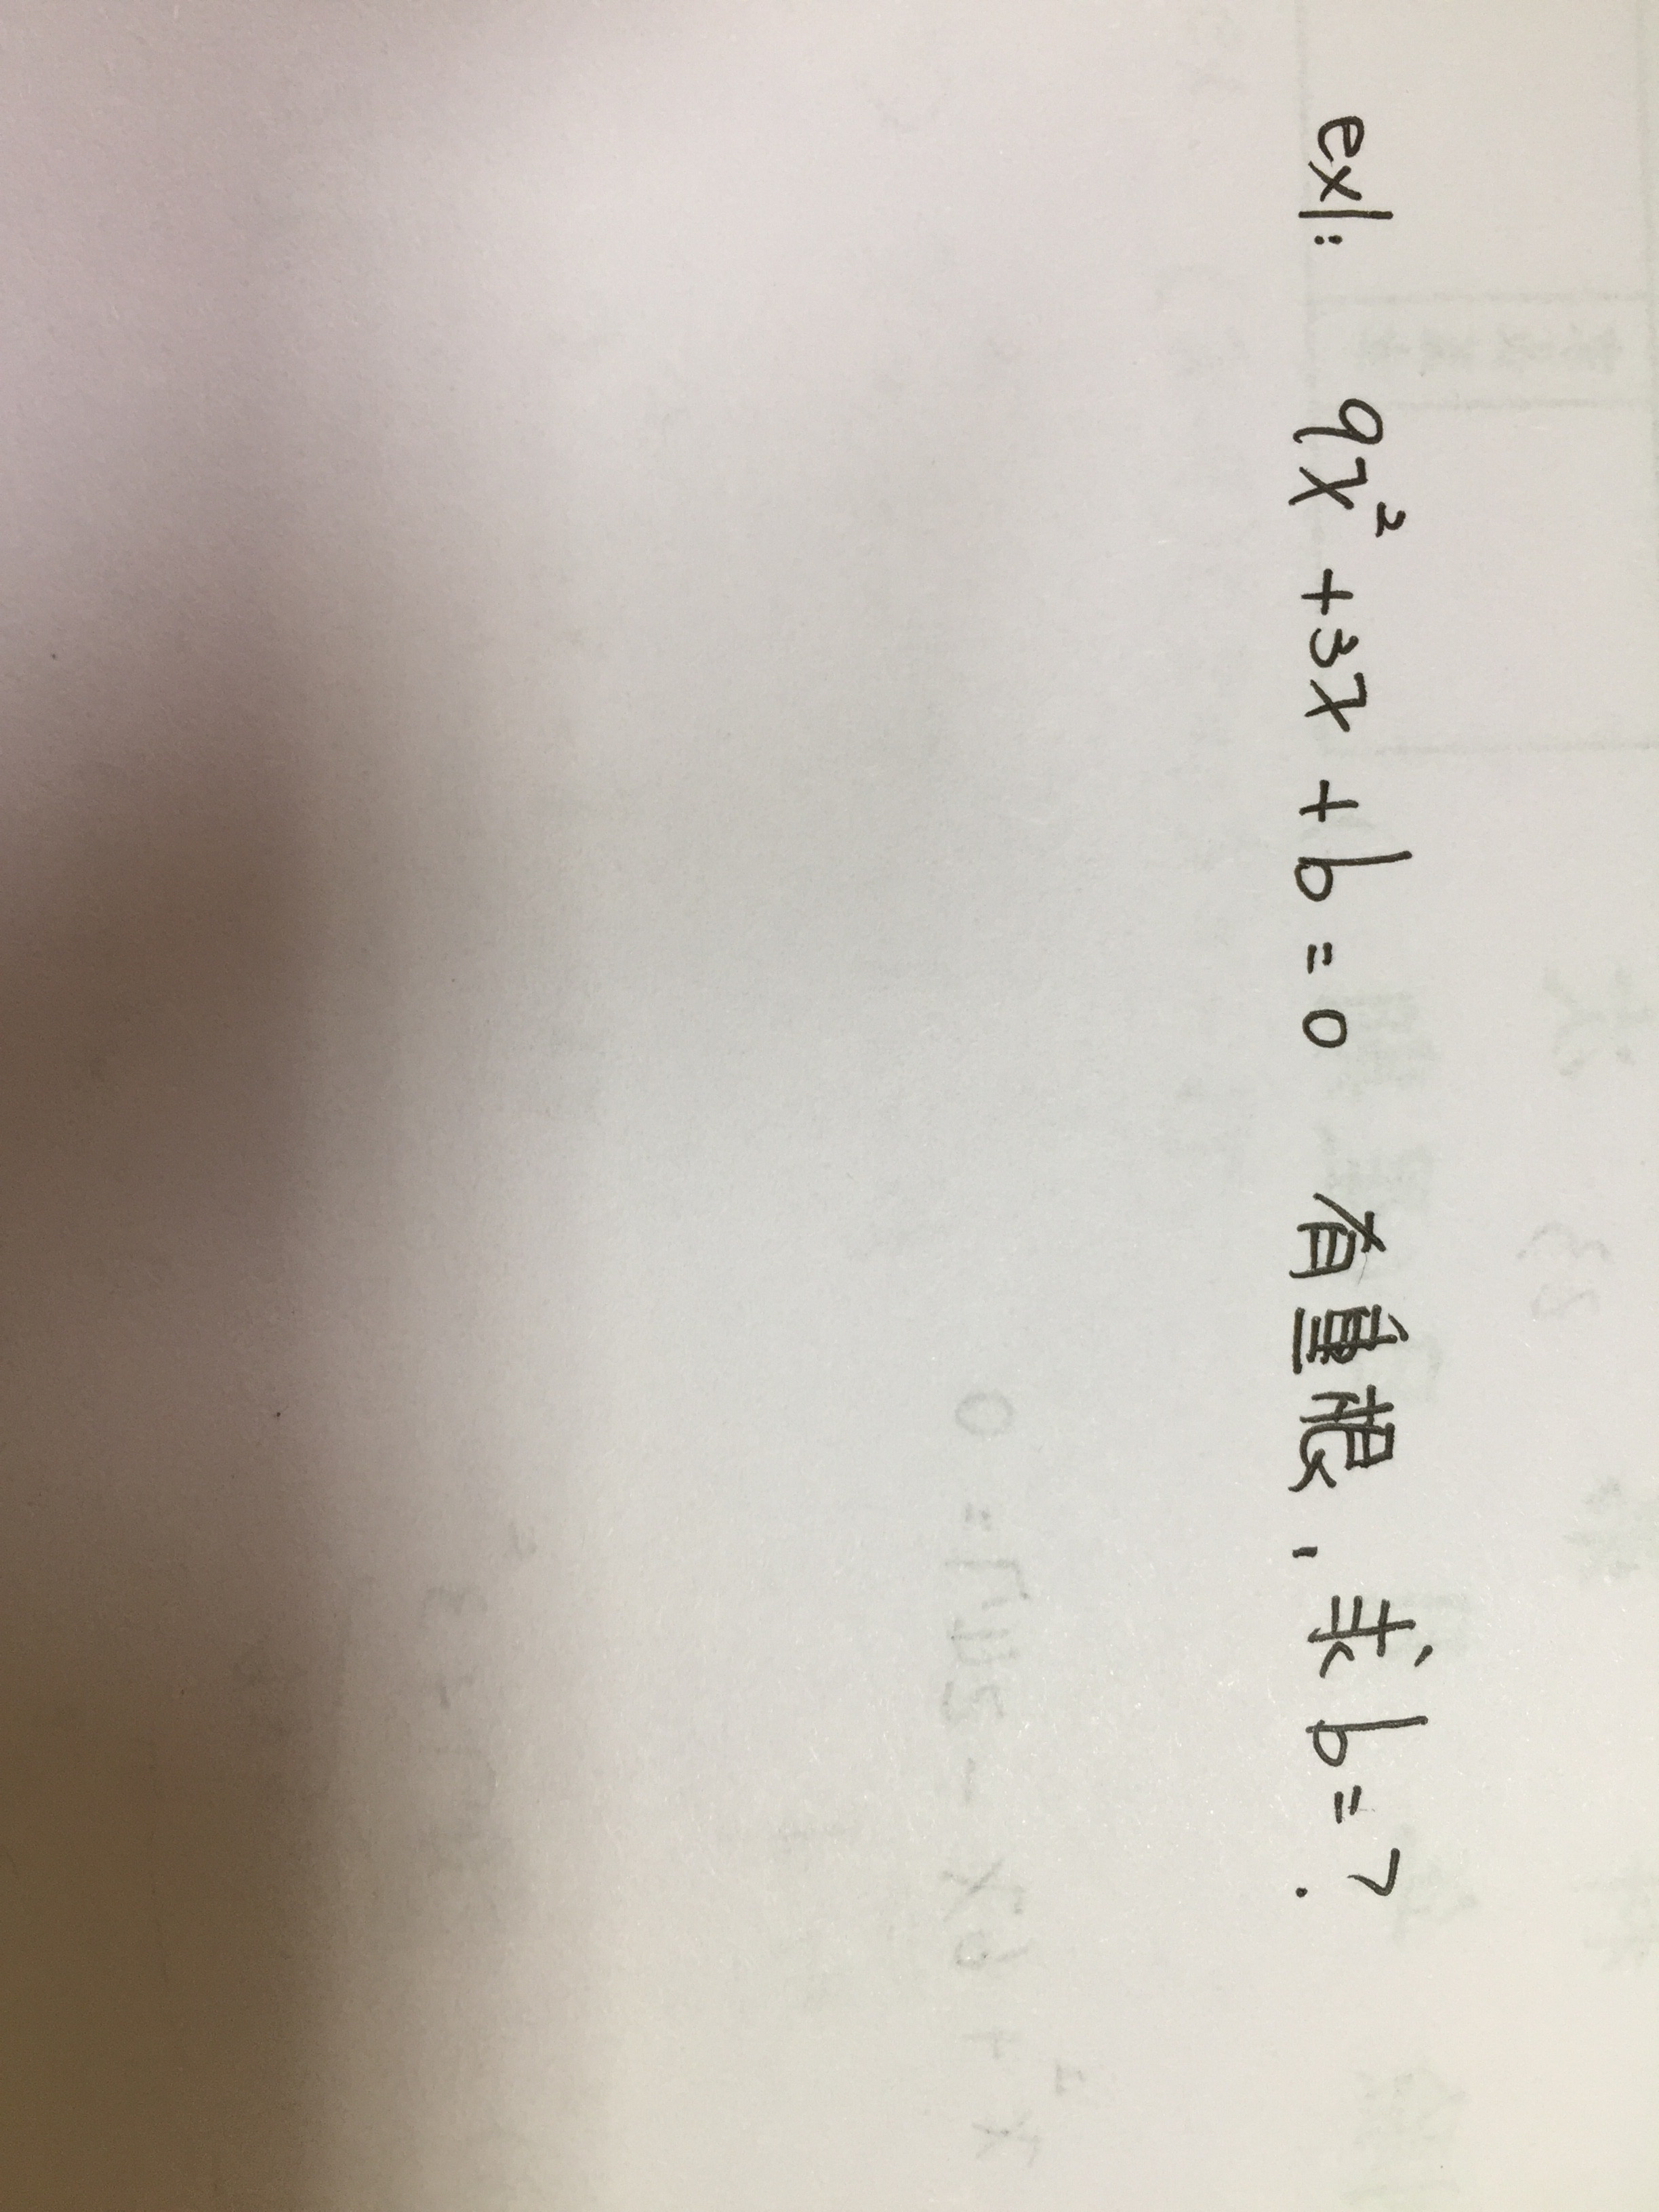 ex1: 9x² + 3x + b = 0 有重根, 求 b = ?